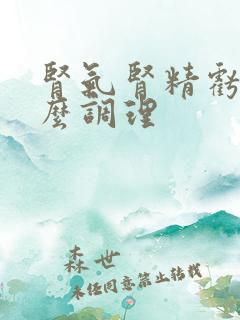 腎氣腎精虧
麼調理
森世
未经同意禁止转载